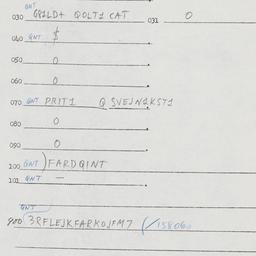 GNT
030 GRILD+ QOLT1 CAT 031 0
040 GNT $
050 0
060 0
070 GNT PRIT1 Q SVEJN1KST1
080 0
090 0
100 GNT )FARDQINT
101 GNT —
GNT
900 3RFLEJKFARKOJFM7 (/158060